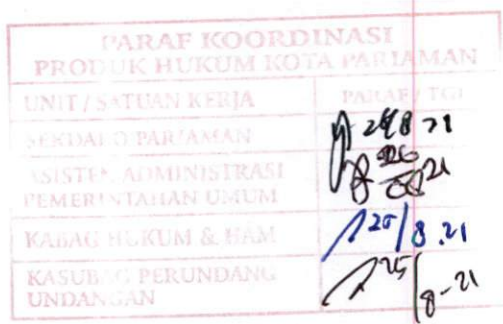 PARAF KOORDINASI
PRODUK HUKUM KOTA PARIAMAN
UNIT / SATUAN KERJA PARAF / TGL
SEKDAKO PARIAMAN
ASISTEN ADMINISTRASI
PEMERINTAHAN UMUM
KABAG HUKUM & HAM 8.21
KASUBAG PERUNDANG 25/8-21
UNDANGAN